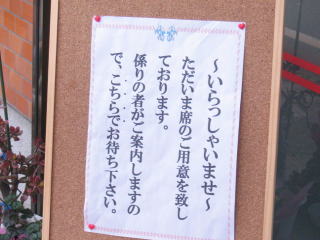 ～いらっしゃいませ～
ただいま席のご用意を致し
ております。
係りの者がご案内しますの
で、こちらでお待ち下さい。